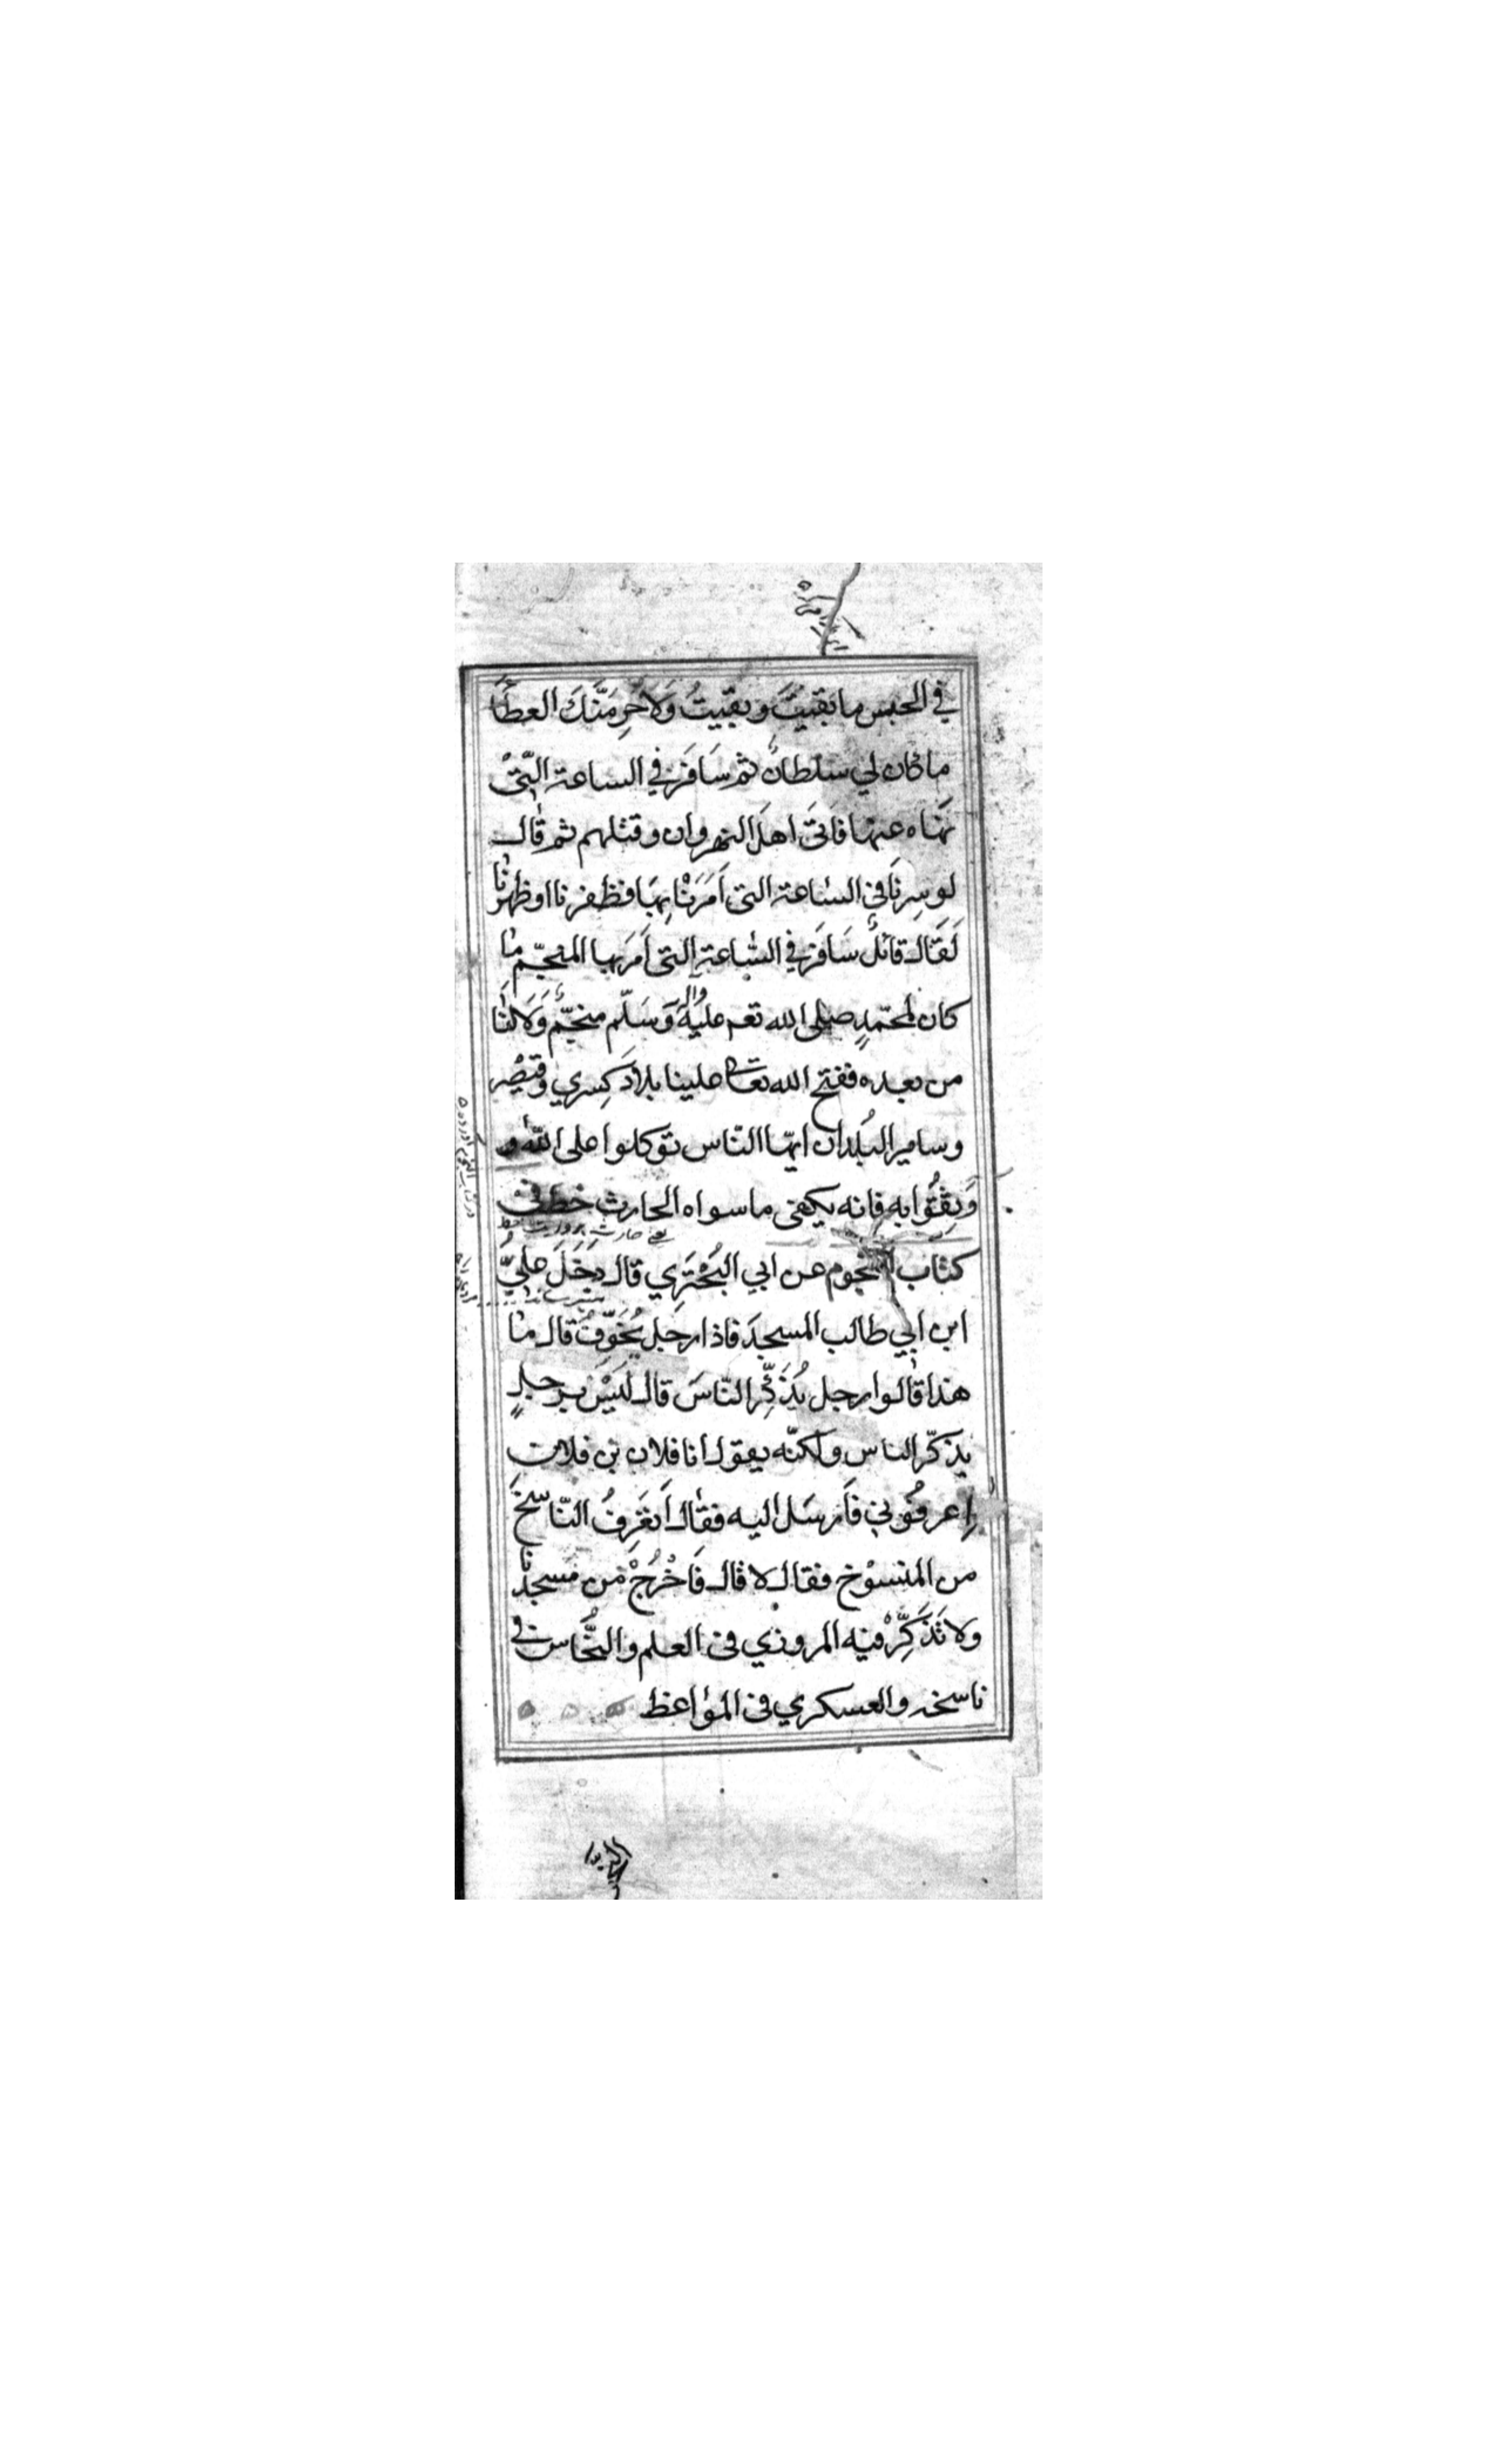 في الحبس ما بقيتَ وبقيتُ وَلاَحرِمَنَّكَ العطَا
ما كان لي سلطانٌ ثم سَافَرَ في الساعة التِّيْ
نَهَاه عنها فاتىَ اهلَ النهروان وقتلهم ثم قال
لو سِرنَا في الساعة التى اَمَرَنْا بِهَا فظفرنا او ظهرنا
لَقَال قائلٌ سَافَرَ في السَّاعة التى اَمَرَ بها المنجّم ما
كان لمحمّدٍ صلى الله تعم عليه واله وَسَلّم منجّمٌ وَلاَ لنَا
من بعده ففتح الله تعالى علينا بلادَ كِسرى وقيصْر
وساير البُلدان ايّها النّاس توكلوا على الله و
وَثِقُوا به فانه يكفى ما سواه الحارث خط في
كتاب النجوم عن ابي البُخْتَرِي قال دَخَلَ عليُّ
ابن ابي طالب المسجدَ فاذا رجل يُخَوِّفُ قال ما
هذا قالوا رجل يُذَكِّر النّاسَ قال لَيَسْ برجلٍ
يذكّر الناس ولكنّه يقول انا فلان بن فلان
اِعرفُوني فَاَرسَل اليه فقال اَتعَرِفُ النّاسخَ
من المنسوْخ فقال لا قال فَاخْرُجْ من مسجدنا
ولا تُذَكِّرْ فيه المروزي فى العلم والنحَّاس في
ناسخه والعسكري في المواعظ